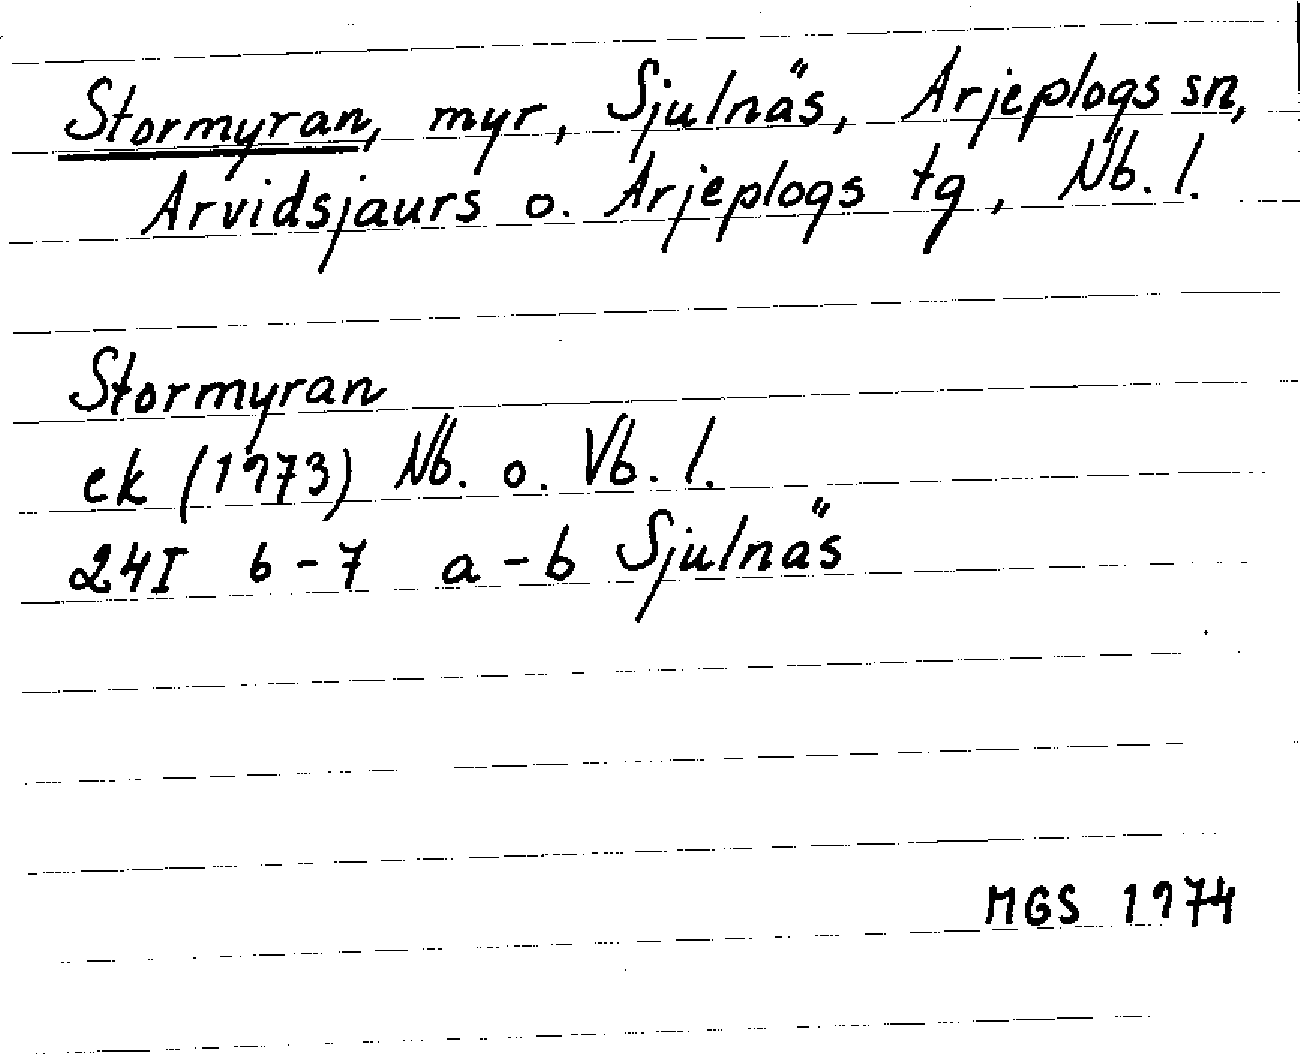 Stormyran, myr, Sjulnäs, Arjeplogs sn,
Arvidsjaurs o. Arjeplogs tg, Nb. l.
Stormyran
ek (1973) Nb. o. Vb. l.
24I 6-7 a-b Sjulnäs
MGS 1974